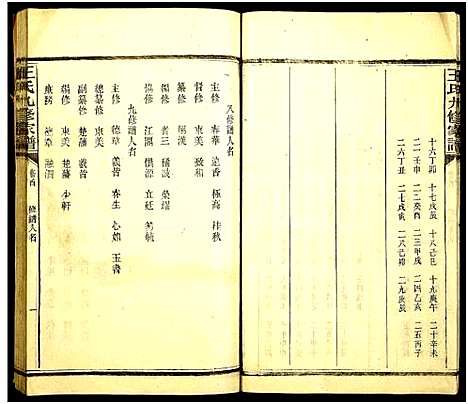 王氏九修家譜
十六丁卯 十七戊辰 十八己巳 十九庚午 二十辛未
二一壬申 二二癸酉 二三甲戌 二四乙亥 二五丙子
二六丁丑 二七戊寅 二八己卯 二九庚辰
八修譜人名
主修 春華 遠香 極高 桂秋
督修 東美 致和
纂修 瑤漢
編修 者三
協修 江閣
九修譜人名
主修 德章 義晉 春生 心如 玉書
總纂修 東美
副纂修 楚藩 義晉
編修 東美 楚藩 少軒
德章
王氏九修家譜
卷首
修譜人名
一